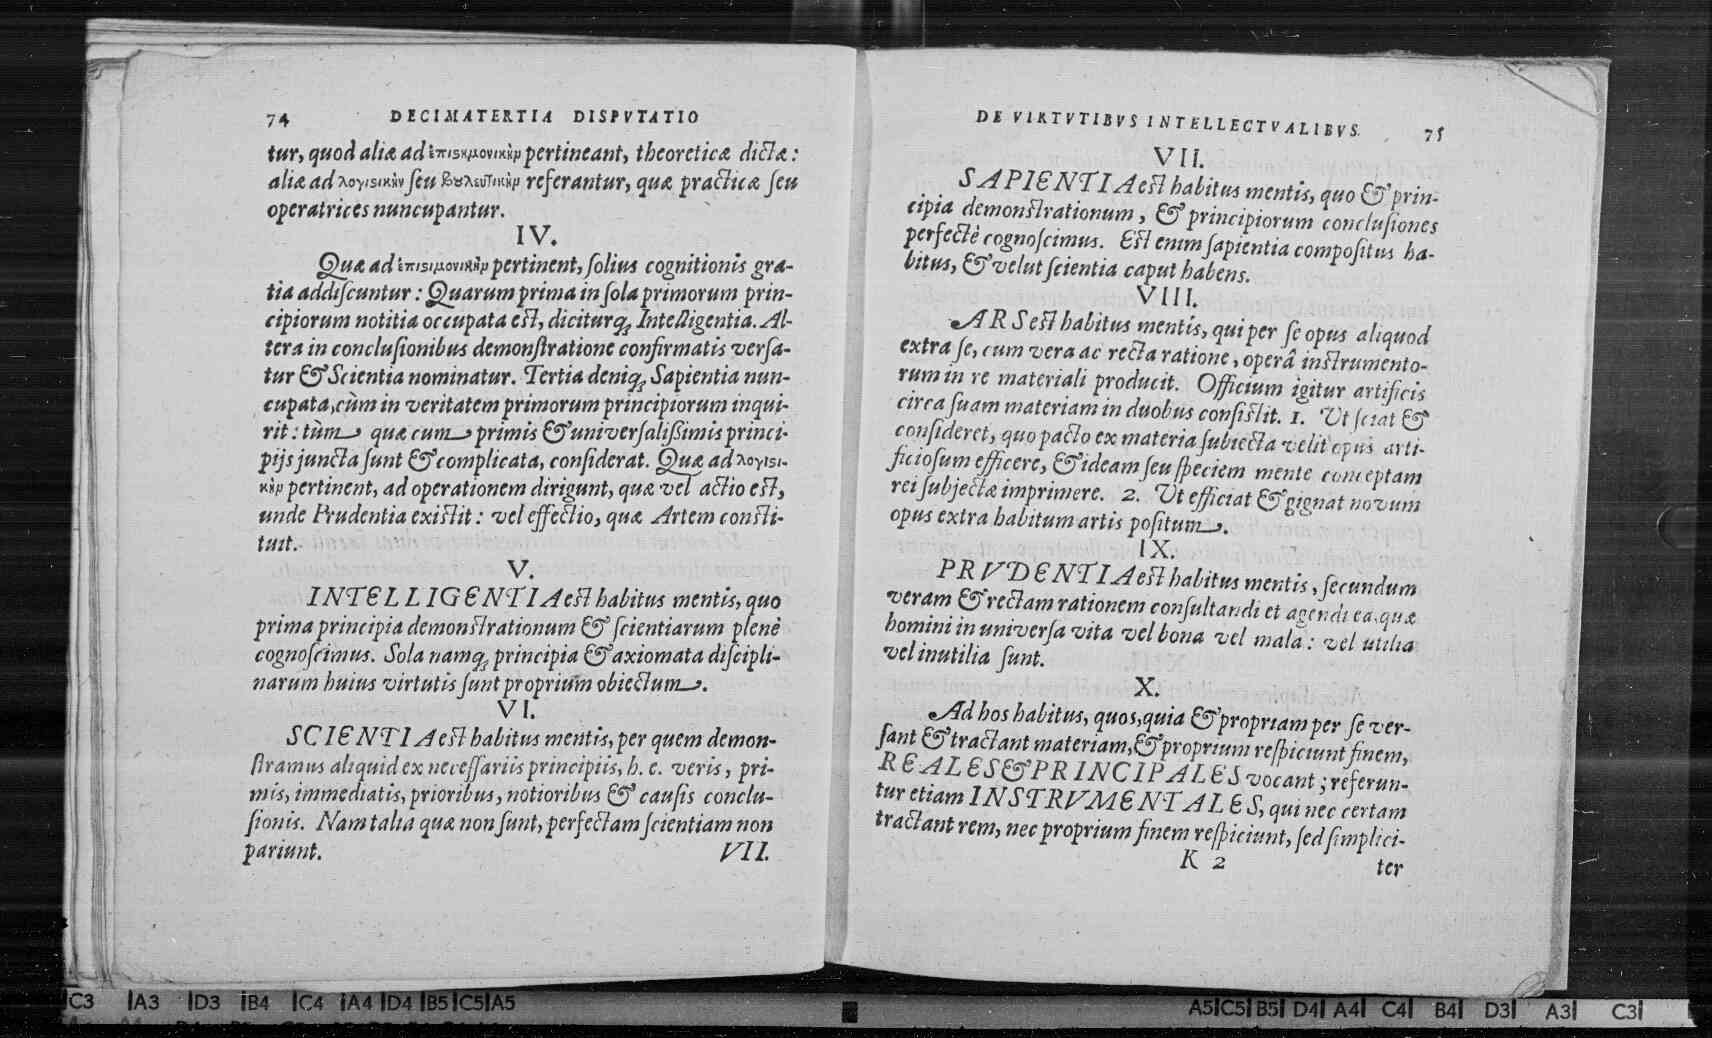 74 DECIMATERTIA DISPVTATIO
tur, quod aliæ ad ἐπιςημονικὴν pertineant, theoreticæ dictæ:
aliæ ad λογιςικὴν ſeu βȣλευτικὴν referantur, quæ practicæ ſeu
operatrices nuncupantur.
IV.
Quæ ad ἐπιςιμονικὴν pertinent, ſolius cognitionis gra-
tia addiſcuntur: Quarum prima in ſola primorum prin-
cipiorum notitia occupata eſt, diciturq; Intelligentia. Al-
tera in concluſionibus demonſtratione confirmatis verſa-
tur & Scientia nominatur. Tertia deniq; Sapientia nun-
cupata, cùm in veritatem primorum principiorum inqui-
rit: tùm quæ cum primis & univerſalißimis princi-
pijs juncta ſunt & complicata, conſiderat. Quæ ad λογιςι-
κὴν pertinent, ad operationem dirigunt, quæ vel actio eſt,
unde Prudentia exiſtit: vel effectio, quæ Artem conſti-
tuit.
V.
INTELLIGENTIA eſt habitus mentis, quo
prima principia demonſtrationum & ſcientiarum plenè
cognoſcimus. Sola namq; principia & axiomata diſcipli-
narum huius virtutis ſunt proprium obiectum.
VI.
SCIENTIA eſt habitus mentis, per quem demon-
ſtramus aliquid ex neceſſariis principiis, h. e. veris, pri-
mis, immediatis, prioribus, notioribus & cauſis conclu-
ſionis. Nam talia quæ non ſunt, perfectam ſcientiam non
pariunt. VII.
DE VIRTVTIBVS INTELLECTVALIBVS. 75
VII.
SAPIENTIA eſt habitus mentis, quo & prin-
cipia demonſtrationum, & principiorum concluſiones
perfectè cognoſcimus. Eſt enim ſapientia compoſitus ha-
bitus, & velut ſcientia caput habens.
VIII.
ARS eſt habitus mentis, qui per ſe opus aliquod
extra ſe, cum vera ac recta ratione, operâ inſtrumento-
rum in re materiali producit. Officium igitur artificis
circa ſuam materiam in duobus conſiſtit. 1. Ut ſciat &
conſideret, quo pacto ex materia ſubiecta velit opus arti-
ficioſum efficere, & ideam ſeu ſpeciem mente conceptam
rei ſubjectæ imprimere. 2. Ut efficiat & gignat novum
opus extra habitum artis poſitum.
IX.
PRVDENTIA eſt habitus mentis, ſecundum
veram & rectam rationem conſultandi et agendi ea, quæ
homini in univerſa vita vel bona vel mala: vel utilia
vel inutilia ſunt.
X.
Ad hos habitus, quos, quia & propriam per ſe ver-
ſant & tractant materiam, & proprium reſpiciunt finem,
REALES & PRINCIPALES vocant; referun-
tur etiam INSTRVMENTALES, qui nec certam
tractant rem, nec proprium finem reſpiciunt, ſed ſimplici-
K 2 ter
C3 A3 D3 B4 C4 A4 D4 B5 C5 A5
A5 C5 B5 D4 A4 C4 B4 D3 A3 C3